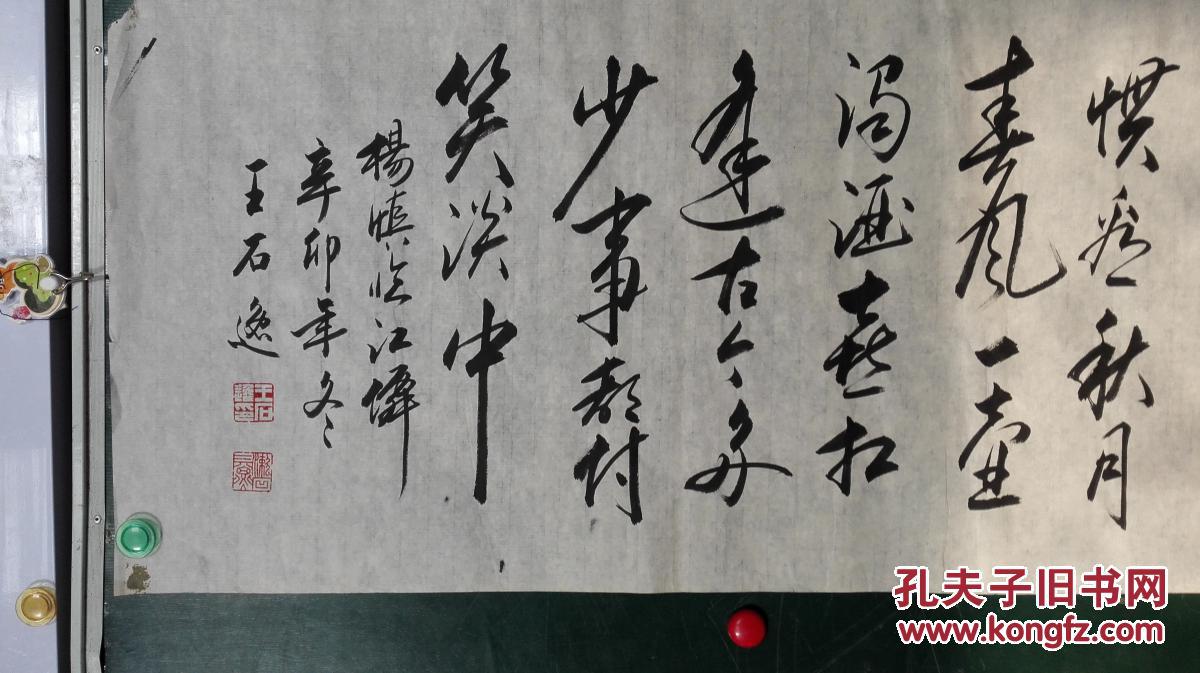 惯看秋月
春风一壶
濁酒喜相
逢古今多
少事都付
笑谈中
楊慎临江僊
辛卯年冬
王石
孔夫子旧书网
www.kongfz.com